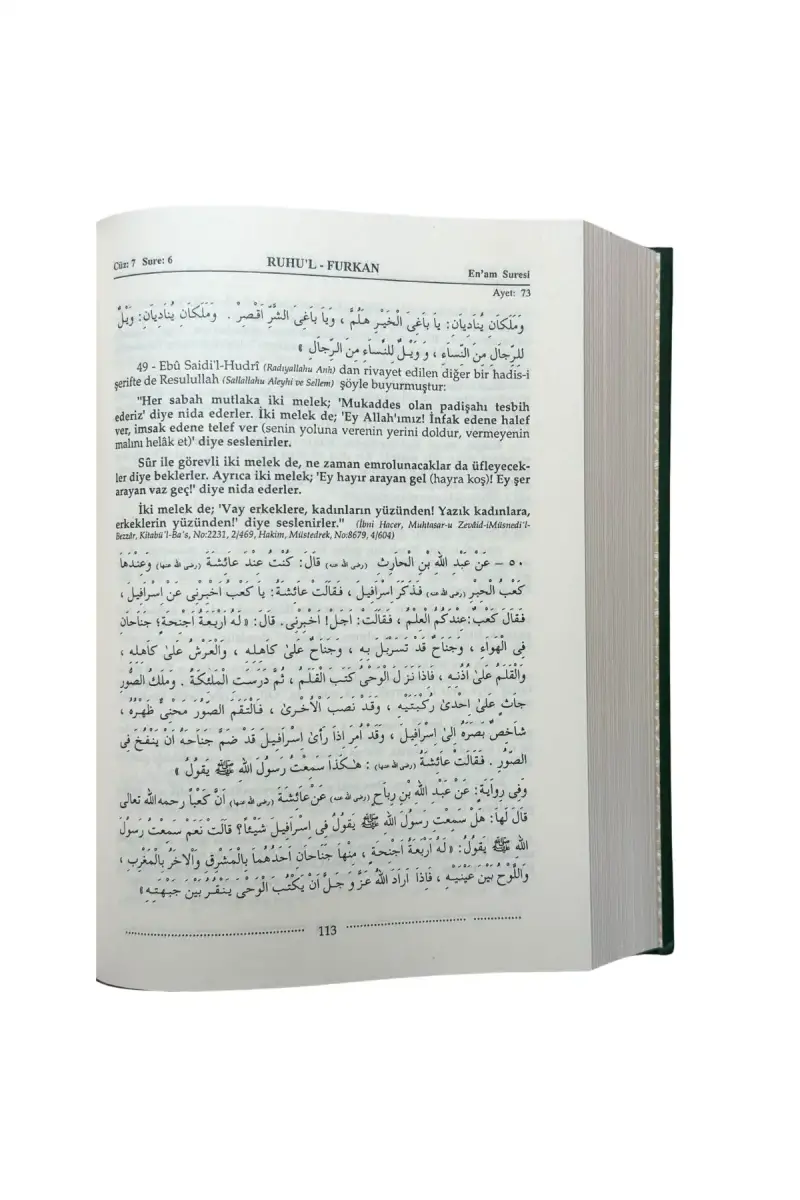 Cüz: 7 Sure: 6
RUHU'L - FURKAN
En'am Suresi
Ayet: 73
وَمَلَكَانِ يُنَادِيَانِ: يَا بَاغِىَ الْخَيْرِ هَلُمَّ ، وَيَا بَاغِىَ الشَّرِّ اَقْصِرْ . وَمَلَكَانِ يُنَادِيَانِ: وَيْلٌ
لِلرِّجَالِ مِنَ النِّسَاءِ ، وَ وَيْلٌ لِلنِّسَاءِ مِنَ الرِّجَالِ »
49 - Ebû Saidi'l-Hudrî (Radıyallahu Anh) dan rivayet edilen diğer bir hadis-i
şerifte de Resulullah (Sallallahu Aleyhi ve Sellem) şöyle buyurmuştur:
"Her sabah mutlaka iki melek; 'Mukaddes olan padişahı tesbih
ederiz' diye nida ederler. İki melek de; 'Ey Allah'ımız! İnfak edene halef
ver, imsak edene telef ver (senin yoluna verenin yerini doldur, vermeyenin
malını helâk et)' diye seslenirler.
Sûr ile görevli iki melek de, ne zaman emrolunacaklar da üfleyecek-
ler diye beklerler. Ayrıca iki melek; 'Ey hayır arayan gel (hayra koş)! Ey şer
arayan vaz geç!' diye nida ederler.
İki melek de; 'Vay erkeklere, kadınların yüzünden! Yazık kadınlara,
erkeklerin yüzünden!' diye seslenirler." (İbni Hacer, Muhtasar-u Zevâid-iMüsnedi'l-
Bezzâr, Kitabü'l-Ba's, No:2231, 2/469, Hakim, Müstedrek, No:8679, 4/604)
٥٠ – عَنْ عَبْدِ اللهِ بْنِ الْحَارِثِ (رضى الله عنه) قَالَ: كُنْتُ عِنْدَ عَائِشَةَ (رضى الله عنها) وَعِنْدَهَا
كَعْبُ الْحَبْرِ (رضى الله عنه) فَذَكَرَ اِسْرَافِيلَ ، فَقَالَتْ عَائِشَةُ: يَا كَعْبُ اَخْبِرْنِى عَنْ اِسْرَافِيلَ ،
فَقَالَ كَعْبٌ:عِنْدَكُمُ الْعِلْمُ ، فَقَالَتْ: اَجَلْ! اَخْبِرْنِى. قَالَ: «لَهُ اَرْبَعَةُ اَجْنِحَةٍ؛ جَنَاحَانِ
فِى الْهَوَاءِ ، وَجَنَاحٌ قَدْ تَسَرْبَلَ بِهِ ، وَجَنَاحٌ عَلَىٰ كَاهِلِهِ ، وَالْعَرْشُ عَلَىٰ كَاهِلِهِ ،
وَالْقَلَمُ عَلَىٰ اُذُنِهِ ، فَاِذَا نَزَلَ الْوَحْىُ كَتَبَ الْقَلَمُ ، ثُمَّ دَرَسَتِ الْمَلٰئِكَةُ . وَمَلَكُ الصُّورِ
جَاثٍ عَلَىٰ اِحْدٰى رُكْبَتَيْهِ ، وَقَدْ نَصَبَ الْاُخْرٰى ، فَالْتَقَمَ الصُّورَ مَحْنِىٌّ ظَهْرُهُ ،
شَاخِصٌ بَصَرُهُ اِلٰى اِسْرَافِيلَ ، وَقَدْ اُمِرَ اِذَا رَأٰى اِسْرَافِيلَ قَدْ ضَمَّ جَنَاحَهُ اَنْ يَنْفُخَ فِى
الصُّورِ . فَقَالَتْ عَائِشَةُ (رضى الله عنها) : هٰكَذَا سَمِعْتُ رَسُولَ اللهِ ﷺ يَقُولُ »
وَفِى رِوَايَةٍ: عَنْ عَبْدِ اللهِ بْنِ رَبَاحٍ (رضى الله عنه) عَنْ عَائِشَةَ (رضى الله عنها) اَنَّ كَعْباً رحمه الله تعالى
قَالَ لَهَا: هَلْ سَمِعْتِ رَسُولَ اللهِ ﷺ يَقُولُ فِى اِسْرَافِيلَ شَيْئاً؟ قَالَتْ نَعَمْ سَمِعْتُ رَسُولَ
اللهِ ﷺ يَقُولُ: «لَهُ اَرْبَعَةُ اَجْنِحَةٍ ، مِنْهَا جَنَاحَانِ اَحَدُهُمَا بِالْمَشْرِقِ وَالْاٰخَرُ بِالْمَغْرِبِ ،
وَاللَّوْحُ بَيْنَ عَيْنَيْهِ ، فَاِذَا اَرَادَ اللهُ عَزَّ وَجَلَّ اَنْ يَكْتُبَ الْوَحْىَ يَنْقُرُ بَيْنَ جَبْهَتِهِ»
113